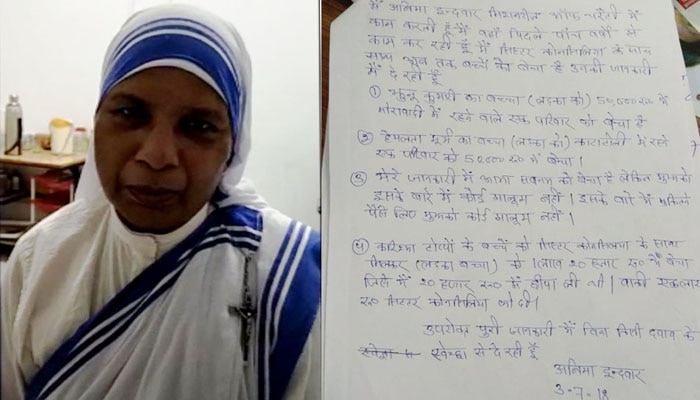 मैं अनिमा इन्दवार मिशनरीज ऑफ चैरिटी में
काम करती हूँ मैं वहाँ पिछले पांच वर्षों से
काम कर रही हूँ मैं सिस्टर कोनसिलिया के साथ
अब तक बच्चे को बेचा है उनकी जानकारी
मैं दे रही हूँ
① कुमारी का बच्चा (लड़का को) 50,000 रू0 में
मोराबादी में रहने वाले एक परिवार को बेचा है
② हेमलता मुर्मू का बच्चा (लड़का को) काटाटोली में रहने
एक परिवार को 50,000 रू0 में बेचा।
③ मेरे जानकारी में को बेचा है लेकिन मुझको
इसके बारे में कोई मालूम नहीं। इसके बारे में
पैसे लिए मुझको कोई मालूम नहीं।
④ करिश्मा टोप्पो के बच्चे को सिस्टर कोनसिलिया के साथ
मिलकर (लड़का बच्चा) को 1 लाख 20 हजार रू0 में बेचा
जिसमें 20 हजार रू0 मैं ली थी। बाकी एक लाख
रू0 सिस्टर कोनसिलिया को दी।
उपरोक्त पुरी जानकारी मैं बिना किसी दवाब के
स्वेच्छा से दे रही हूँ
अनिमा इन्दवार
3-7-18